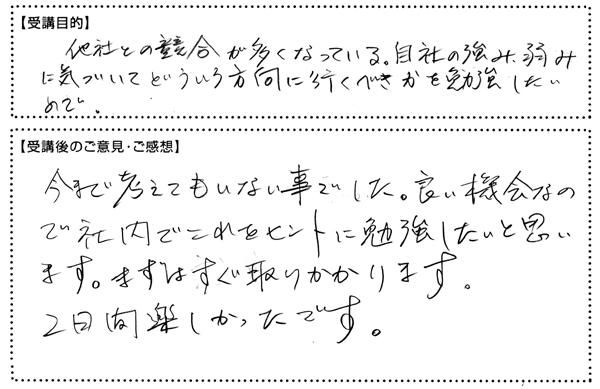 【受講目的】
他社との競合が多くなっている。自社の強み、弱み
に気づいてどういう方向に行くべきかを勉強したい
ので。
【受講後のご意見・ご感想】
今まで考えてもいない事でした。良い機会なの
で社内でこれをヒントに勉強したいと思い
ます。まずはすぐ取りかかります。
2日間楽しかったです。